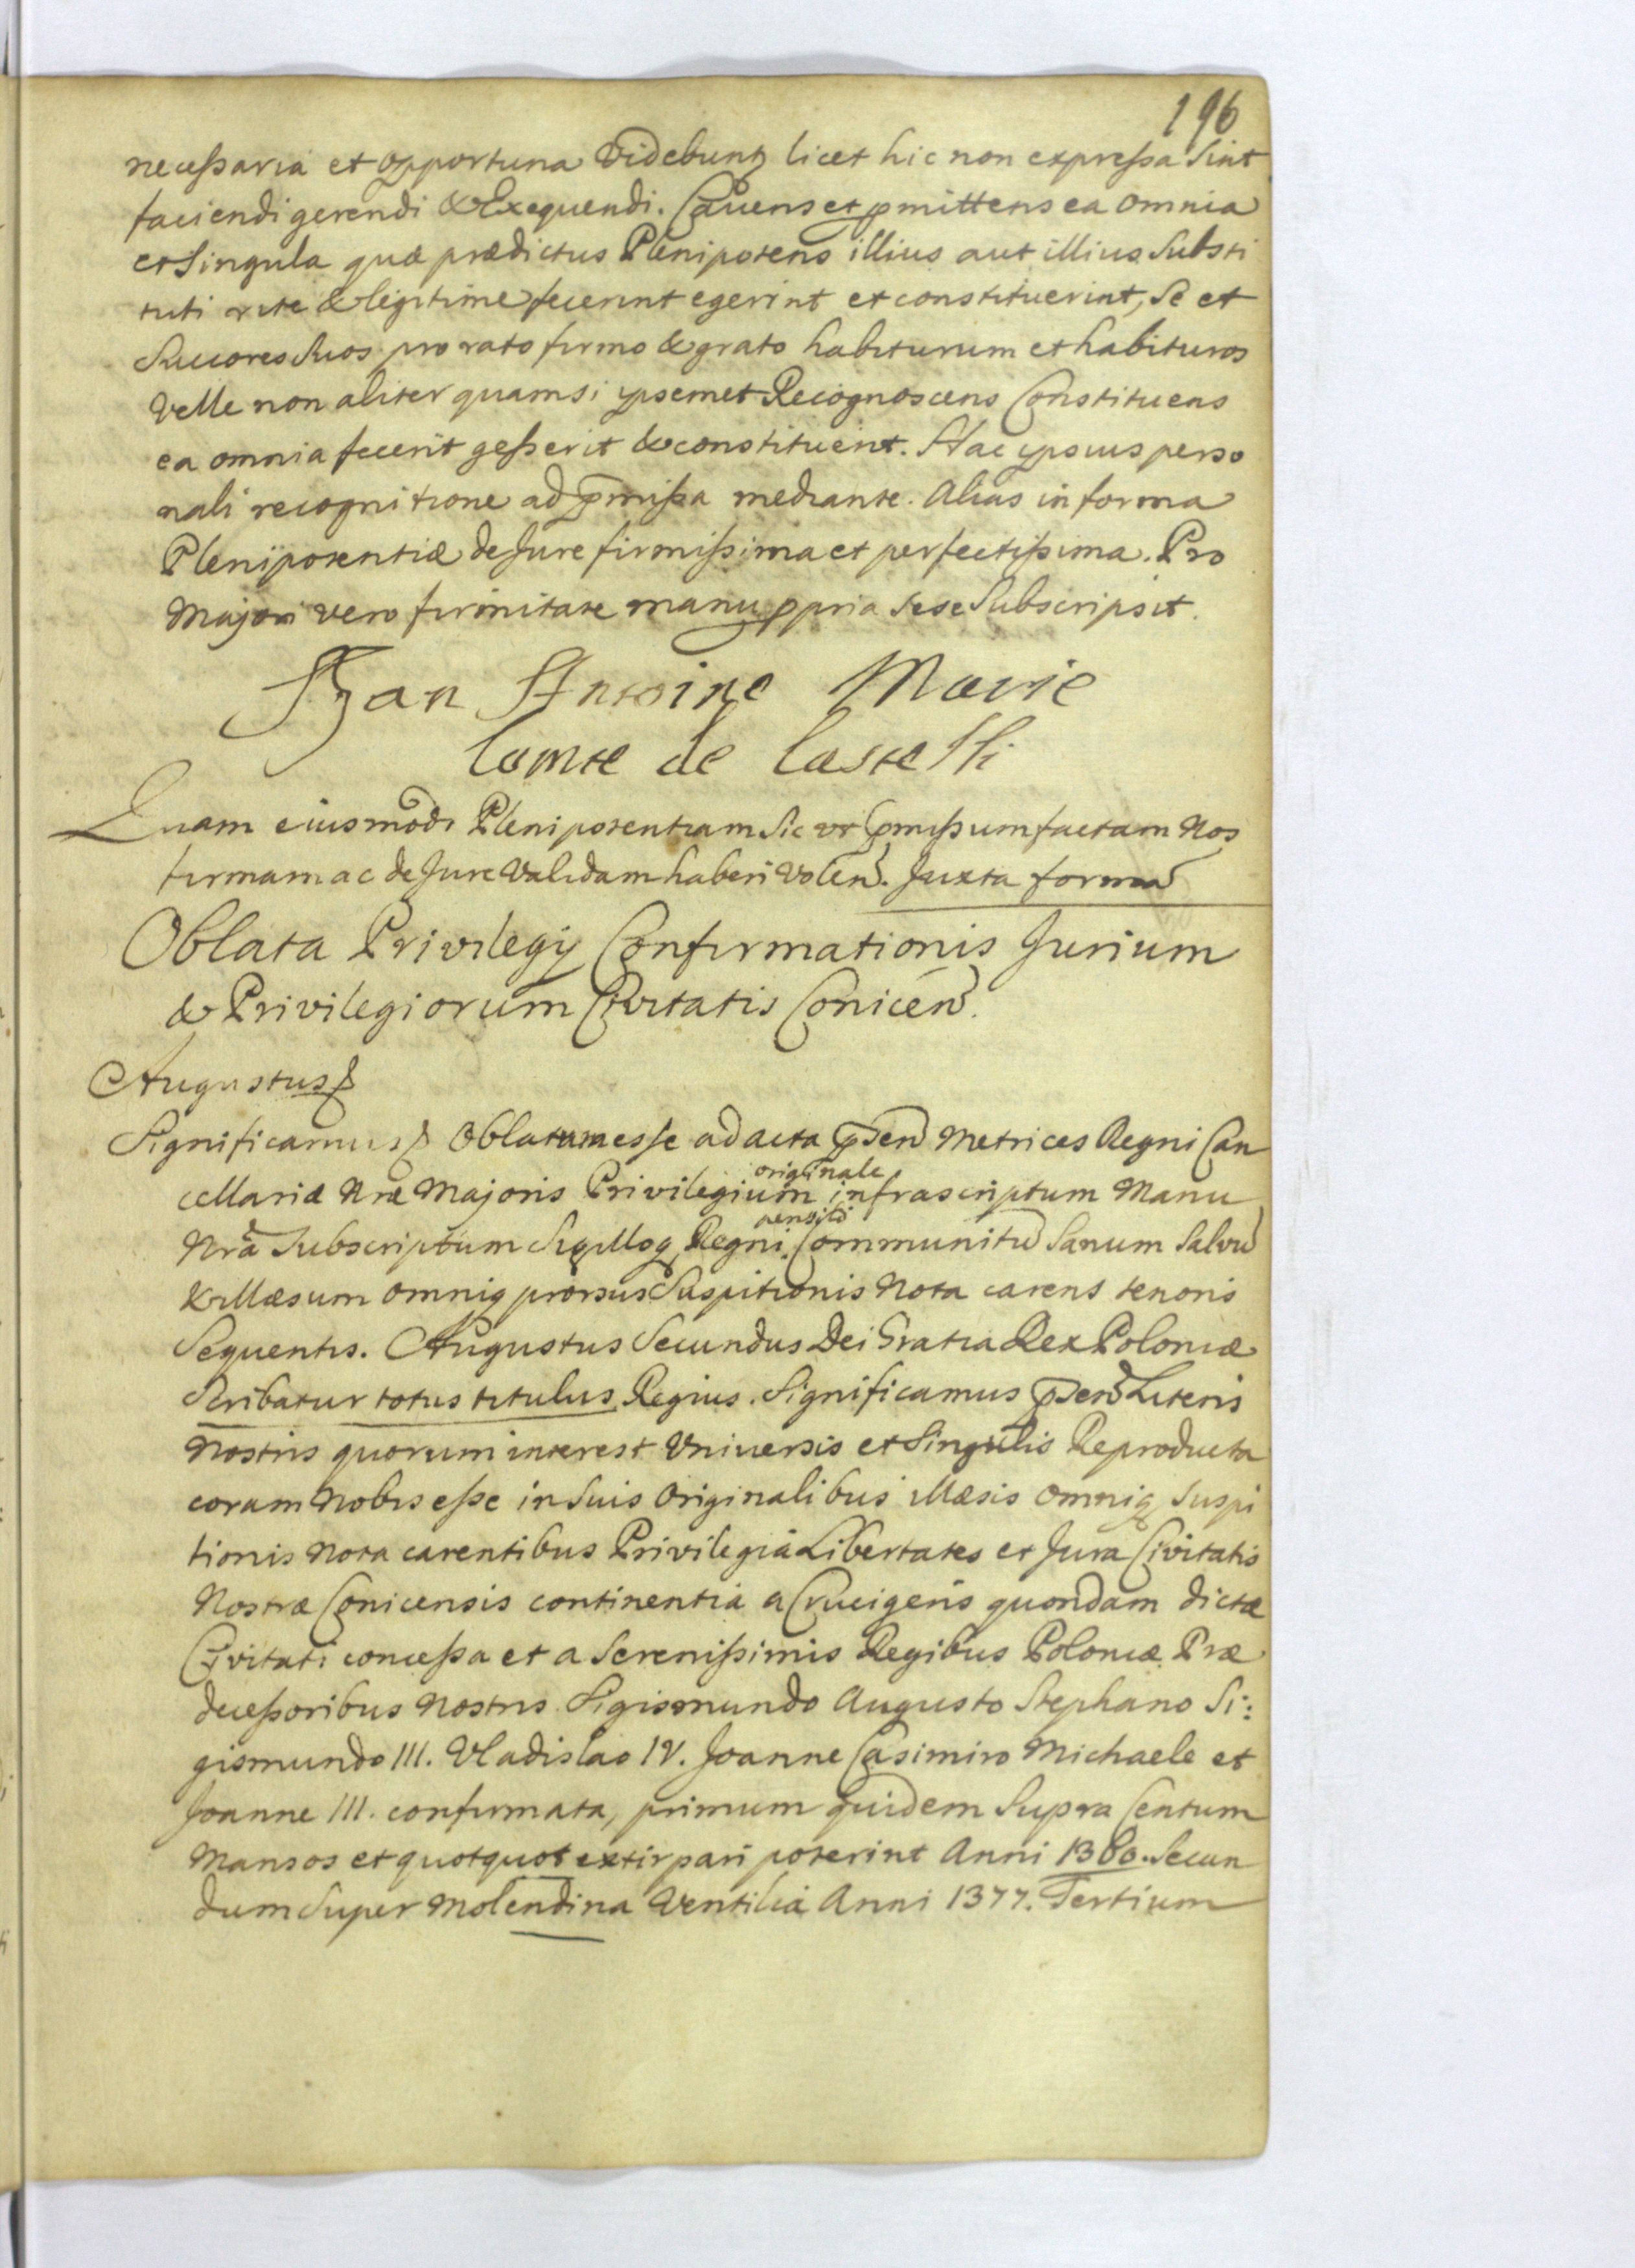 196
necessaria et opportuna Videbuntʒ licet hic non expressa Sint
faciendi gerendi & Exequendi. Cavens et p̄mittens ea omnia
et Singula quæ prædictus Plenipotens illius aut illius Substi
tuti rite & legitime fecerint egerint et constituerint, Se et
Succores Suos pro rato firmo & grato habiturum et habituros
Velle non aliter quam si ipsemet Recognoscens Constituens
ea omnia fecerit gesserit & constituerit. Hac ipsius perso
nali recognitione ad p̄missa mediante. Alias in forma
Plenipotentiæ de Jure firmissima et perfectissima. Pro
Majori vero firmitate manu ppria sese Subscripsit.
Jean Antoine Marie
Comte de Castelli
Quam eiusmodi Plenipotentiam Sic ut p̄missum factam Nos
firmam ac de Jure Validam haberi Volen̄. Juxta formā
Oblata Privilegij Confirmationis Jurium
& Privilegiorum Civitatis Conicen̄.
Augustus
Significamus Oblatum esse ad acta p̄sen̄ Metrices Regni Can
cellariæ Nræ Majoris Privilegium originale infrascriptum Manu
Nrā Subscriptum Sigilloq Regni pensili Communitū Sanum Salvū
& illæsum omniq prorsus Suspitionis Nota carens tenoris
Sequentis. Augustus Secundus Dei Gratia Rex Poloniæ
Scribatur totus titulus Regius. Significamus p̄sen̄ Literis
Nostris quorum interest Vniversis et Singulis Reproducta
coram Nobis esse in Suis Originalibus illæsis omniq Suspi
tionis Nota carentibus Privilegia Libertates et Jura Civitatis
Nostræ Conicensis continentia a Crucigeris quondam dictæ
Civitati concessa et a Serenissimis Regibus Poloniæ Præ
decessoribus Nostris Sigismundo Augusto Stephano Si:
gismundo III. Vladislao IV. Joanne Casimiro Michaele et
Joanne III. confirmata, primum quidem Supra Centum
Mansos et quotquot extirpari poterint Anni 1360. Secun
dum Super Molendina Ventilia Anni 1377. Tertium